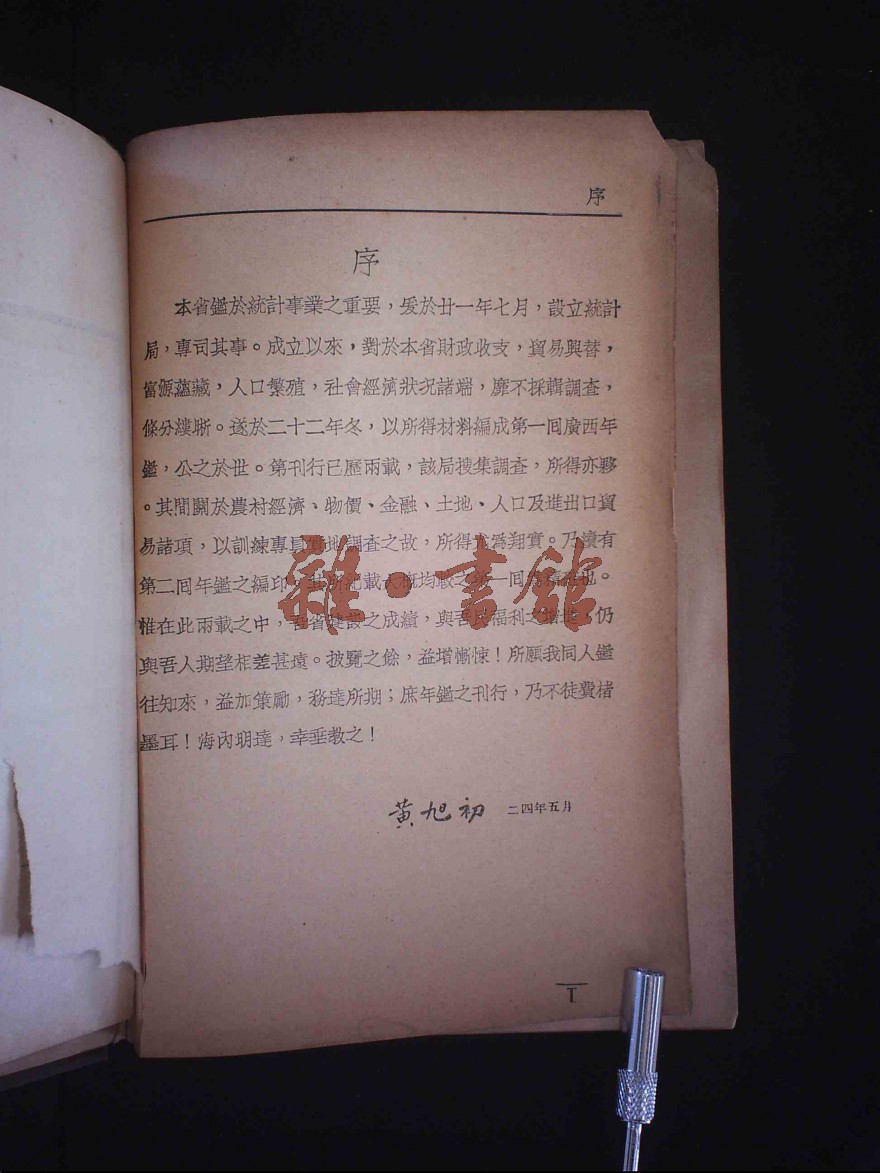 序
序
本省鑑於統計事業之重要，爰於廿一年七月，設立統計
局，專司其事。成立以來，對於本省財政收支，貿易興替，
富源蘊藏，人口繁殖，社會經濟狀況諸端，靡不採輯調查，
條分縷晰。遂於二十二年冬，以所得材料編成第一回廣西年
鑑，公之於世。第刊行已歷兩載，該局搜集調查，所得亦夥
。其間關於農村經濟、物價、金融、土地、人口及進出口貿
易諸項，以訓練專員實地調查之故，所得尤爲翔實。乃續有
第二回年鑑之編印。其所紀載大概均較之第一回爲精確也。
惟在此兩載之中，吾省建設之成績，與吾民福利之增進，仍
與吾人期望相差甚遠。披覽之餘，益增慚悚！所願我同人鑑
往知來，益加策勵，務達所期；庶年鑑之刊行，乃不徒費楮
墨耳！海內明達，幸垂教之！
黃旭初 二四年五月
I
雜·書館